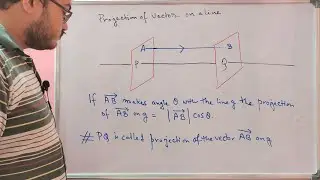 Projection of vector on a line
A B
P Q
If AB makes angle θ with the line g the projection
of AB on g = |AB| cosθ.
# PQ is called projection of the vector AB on g